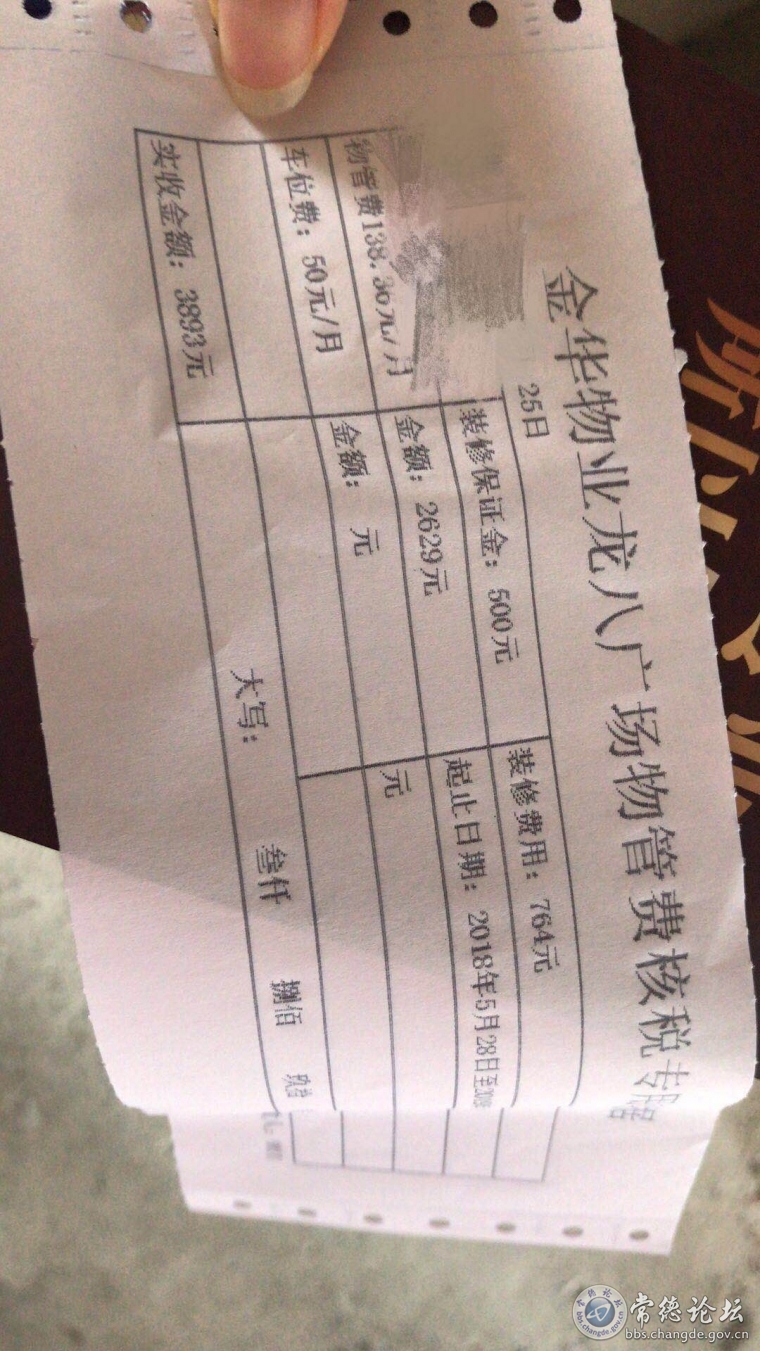 金华物业龙八广场物管费核税专
25日
装修保证金：500元 装修费用：764元
物管费138.36元/月 金额：2629元 起止日期：2018年5月28日至
车位费：50元/月 金额： 元 元
实收金额：3893元 大写： 叁仟 捌佰 玖拾
常德论坛
bbs.changde.gov.cn